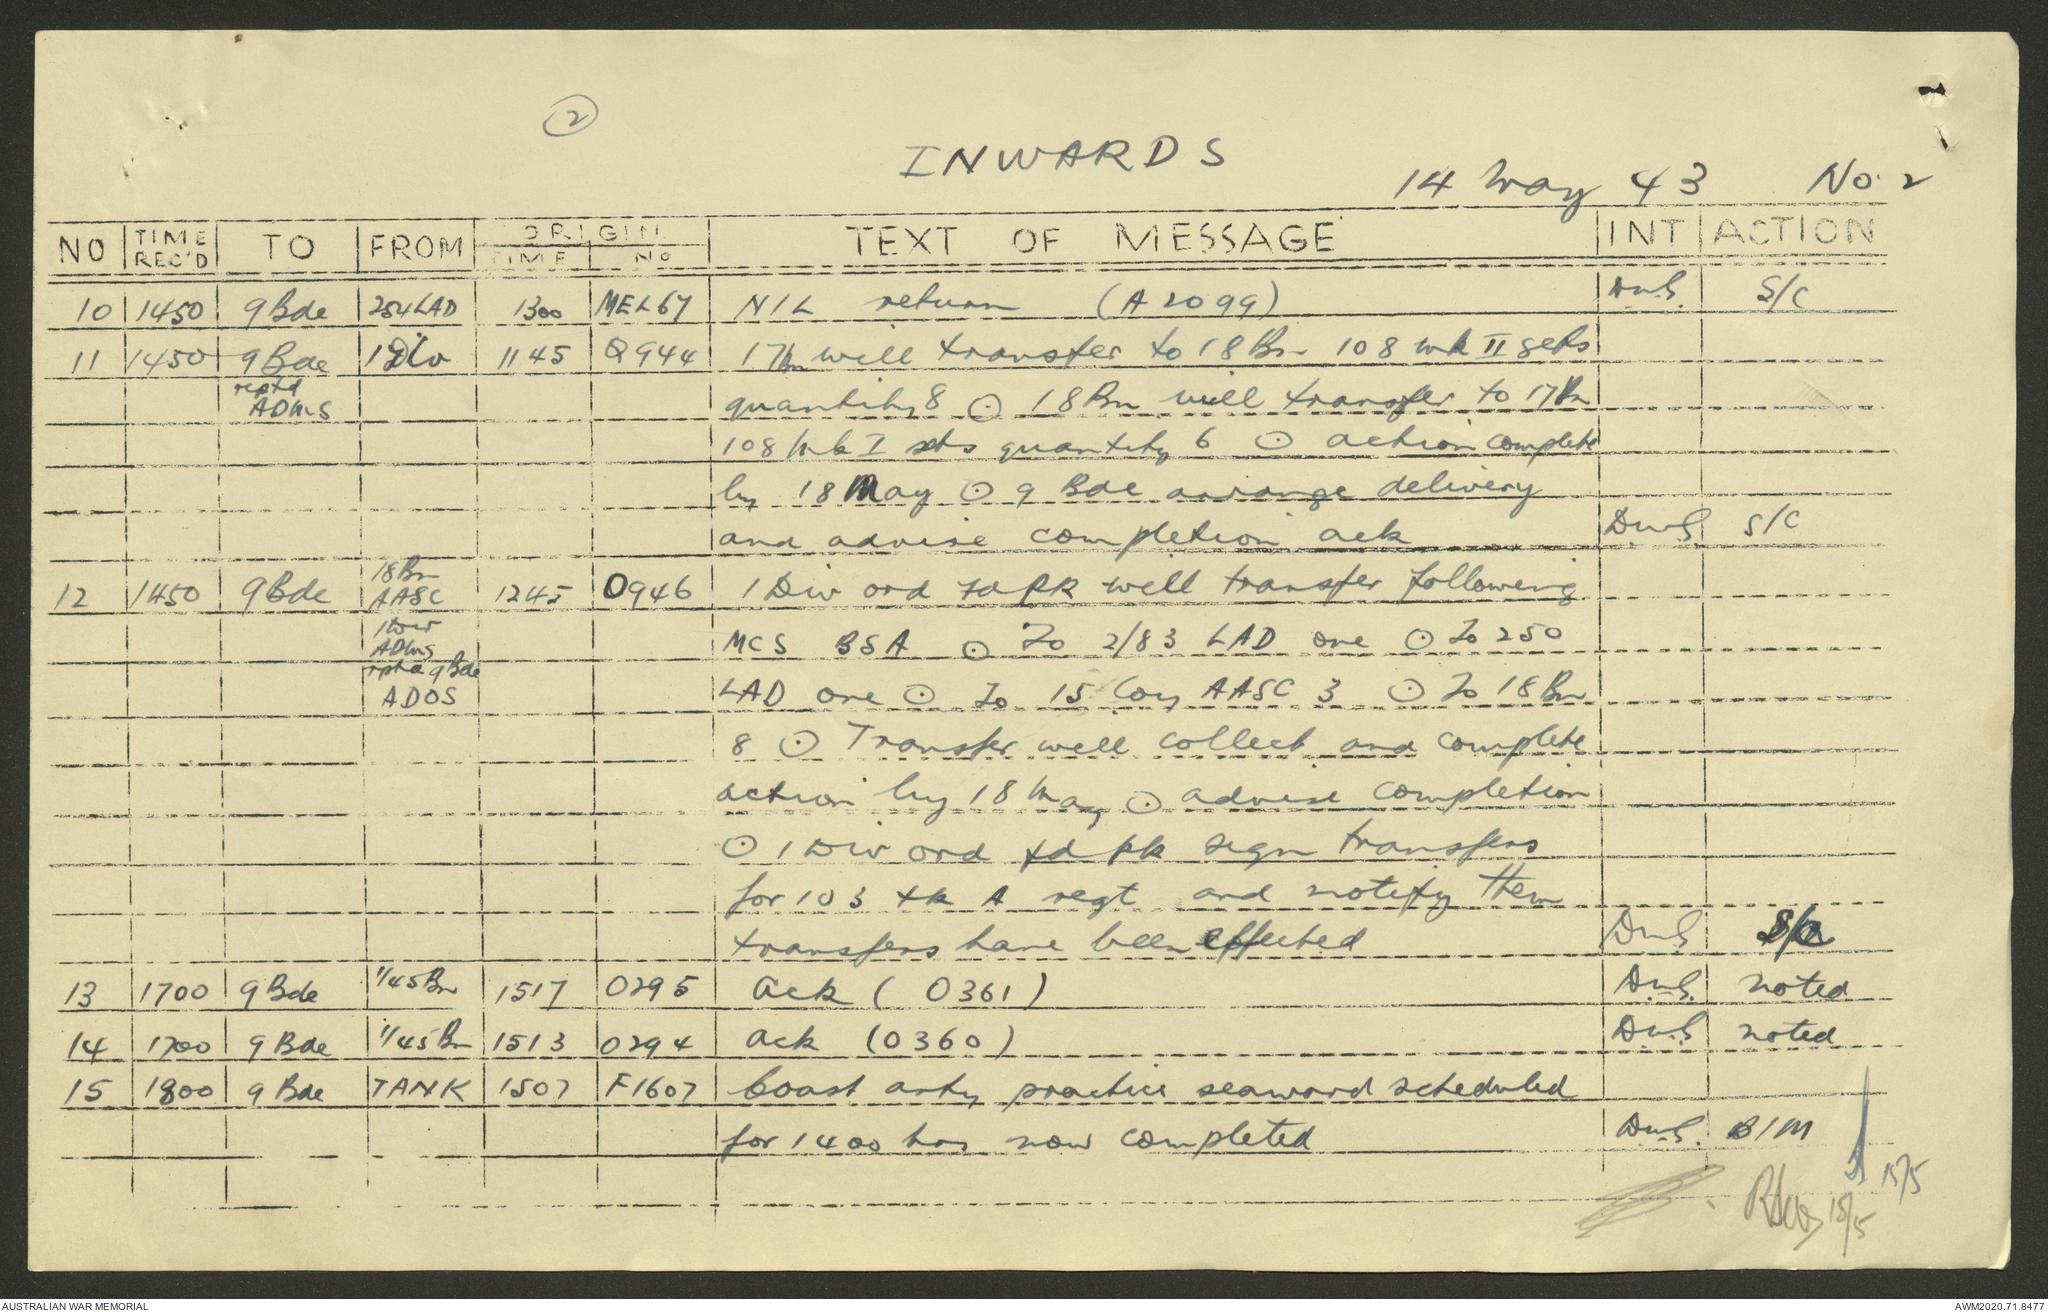 2
INWARDS
14 May 43 No. 2
NO | TIME REC'D | TO | FROM | ORIGIN TIME | ORIGIN No | TEXT OF MESSAGE | INT | ACTION
10 | 1450 | 9 Bde | 254 LAD | 1300 | MEL67 | NIL return (A 2099) | D.W.G. | S/C
11 | 1450 | 9 Bde | 1 Div | 1145 | Q944 | 17 Bn will transfer to 18 Bn 108 mk II sets
reptd ADMS | quantity 8 ⊙ 18 Bn will transfer to 17 Bn
108 mk I sets quantity 6 ⊙ action complete
by 18 May ⊙ 9 Bde arrange delivery
and advise completion ack | S/C
12 | 1450 | 9 Bde | 18 Bn AASC | 1245 | O946 | 1 Div ord fd pk will transfer following
1 Div ADMS | MCS BSA ⊙ To 2/83 LAD one ⊙ To 250
rptd 9 Bde ADOS | LAD one ⊙ To 15 Coy AASC 3 ⊙ To 18 Bn
8 ⊙ Transfer will collect and complete
action by 18 May ⊙ advise completion
⊙ 1 Div ord fd pk sign transfers
for 103 tk A regt and notify them
transfers have been effected | S/C
13 | 1700 | 9 Bde | 1/45 Bn | 1517 | O295 | Ack (O361) | noted
14 | 1700 | 9 Bde | 1/45 Bn | 1513 | O294 | ack (O360) | noted
15 | 1800 | 9 Bde | TANK | 1507 | F1607 | Coast arty practice seaward scheduled
for 1400 hrs now completed | B/M
15/5
15/5
AUSTRALIAN WAR MEMORIAL
AWM2020.71.8477